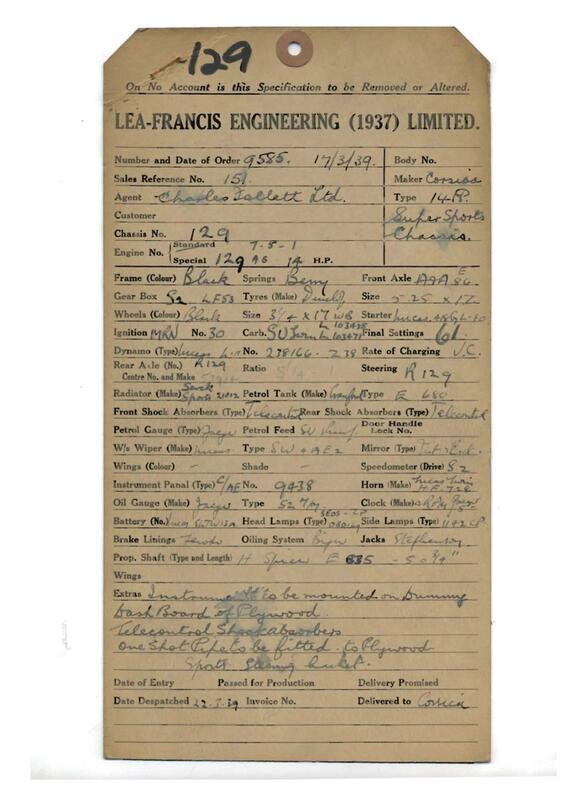 129
On No Account is this Specification to be Removed or Altered.
LEA-FRANCIS ENGINEERING (1937) LIMITED.
Number and Date of Order 9585. 17/3/39. Body No.
Sales Reference No. 151 Maker Corsica
Agent Charles Follett Ltd. Type 14-P.
Customer Super Sports
Chassis No. 129 Chassis.
Engine No. Standard 7-5-1
Special 129 AG 14 H.P.
Frame (Colour) Black Springs Berry Front Axle
Gear Box S2 LF53 Tyres (Make) Dunlop Size 5.25 x 17
Wheels (Colour) Black Size 3/4 x 17 WB Starter Lucas
Ignition MRN No. 30 Carb. SU Twin L 103428 L 103471 Final Settings 61
Dynamo (Type) Lucas No. 278166 - Z38 Rate of Charging V.C.
Rear Axle (No.) R129 Ratio Steering R129
Centre No. and Make
Radiator (Make) Serck Sports 21012 Petrol Tank (Make) Type E 680
Front Shock Absorbers (Type) Telecontrol Rear Shock Absorbers (Type) Telecontrol
Petrol Gauge (Type) Jaeger Petrol Feed SU Pump Door Handle Lock No.
W/s Wiper (Make) Lucas Type SW4 AE2 Mirror (Type)
Wings (Colour) - Shade - Speedometer (Drive) S2
Instrument Panal (Type) C/AE No. 9438 Horn (Make) Lucas Twin
Oil Gauge (Make) Jaeger Type S2 Clock (Make)
Battery (No.) Lucas Head Lamps (Type) Side Lamps (Type) 1142 CP
Brake Linings Ferodo Oiling System Bijur Jacks Stephenson
Prop. Shaft (Type and Length) H Spicer E 635 - 50 3/4"
Wings
Extras Instrument to be mounted on Dummy
Dash Board of Plywood.
Telecontrol Shock absorbers
One Shot Pipe to be fitted to Plywood
Sports Steering bracket.
Date of Entry Passed for Production Delivery Promised
Date Despatched 22.5.39 Invoice No. Delivered to Corsica